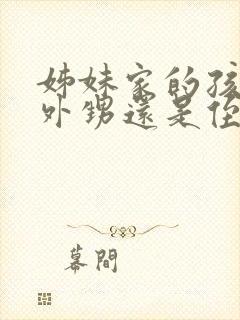 姊妹家的孩
外甥還是侄
幕間